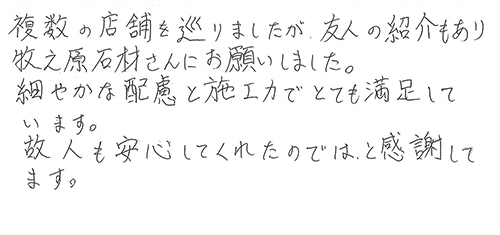 複数の店舗を巡りましたが、友人の紹介もあり
牧之原石材さんにお願いしました。
細やかな配慮と施工力でとても満足して
います。
故人も安心してくれたのでは、と感謝して
ます。